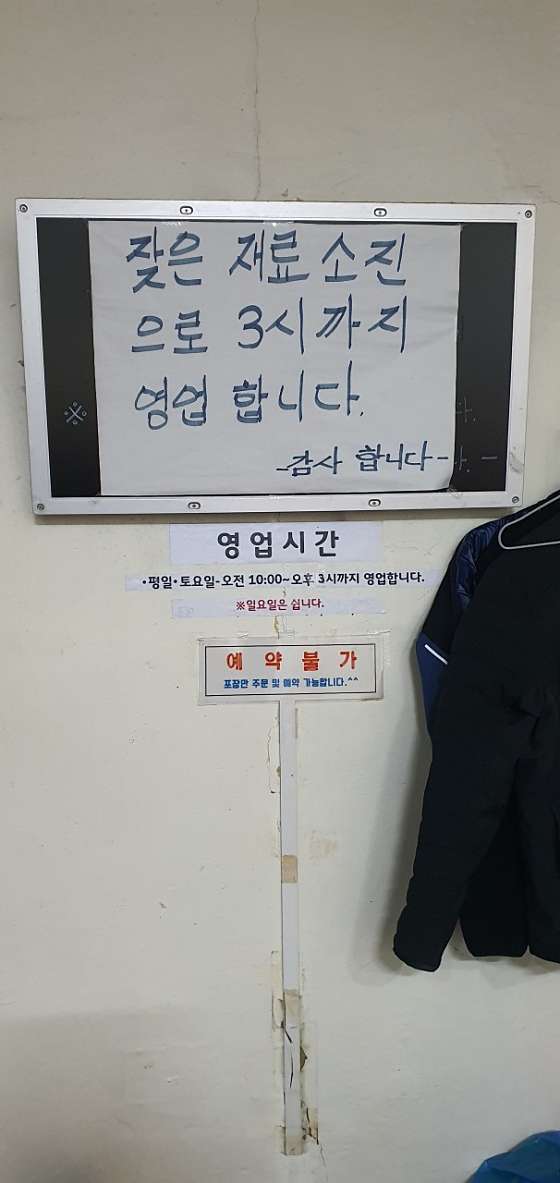 잦은 재료 소진
으로 3시까지
영업 합니다.
-감사 합니다-
영업시간
•평일•토요일-오전 10:00~오후 3시까지 영업합니다.
※일요일은 쉽니다.
예약불가
포장만 주문 및 예약 가능합니다.^^